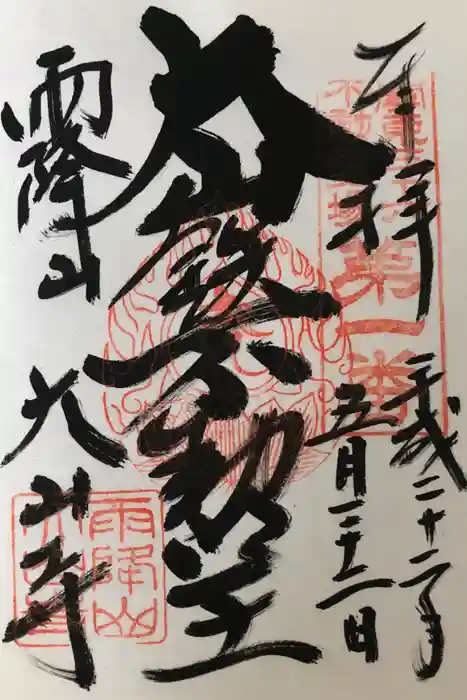 奉拝
平成二十二年
関東三十六
不動霊場
第一番
大山鉄不動
雨降山
大山寺
雨降山
大山寺